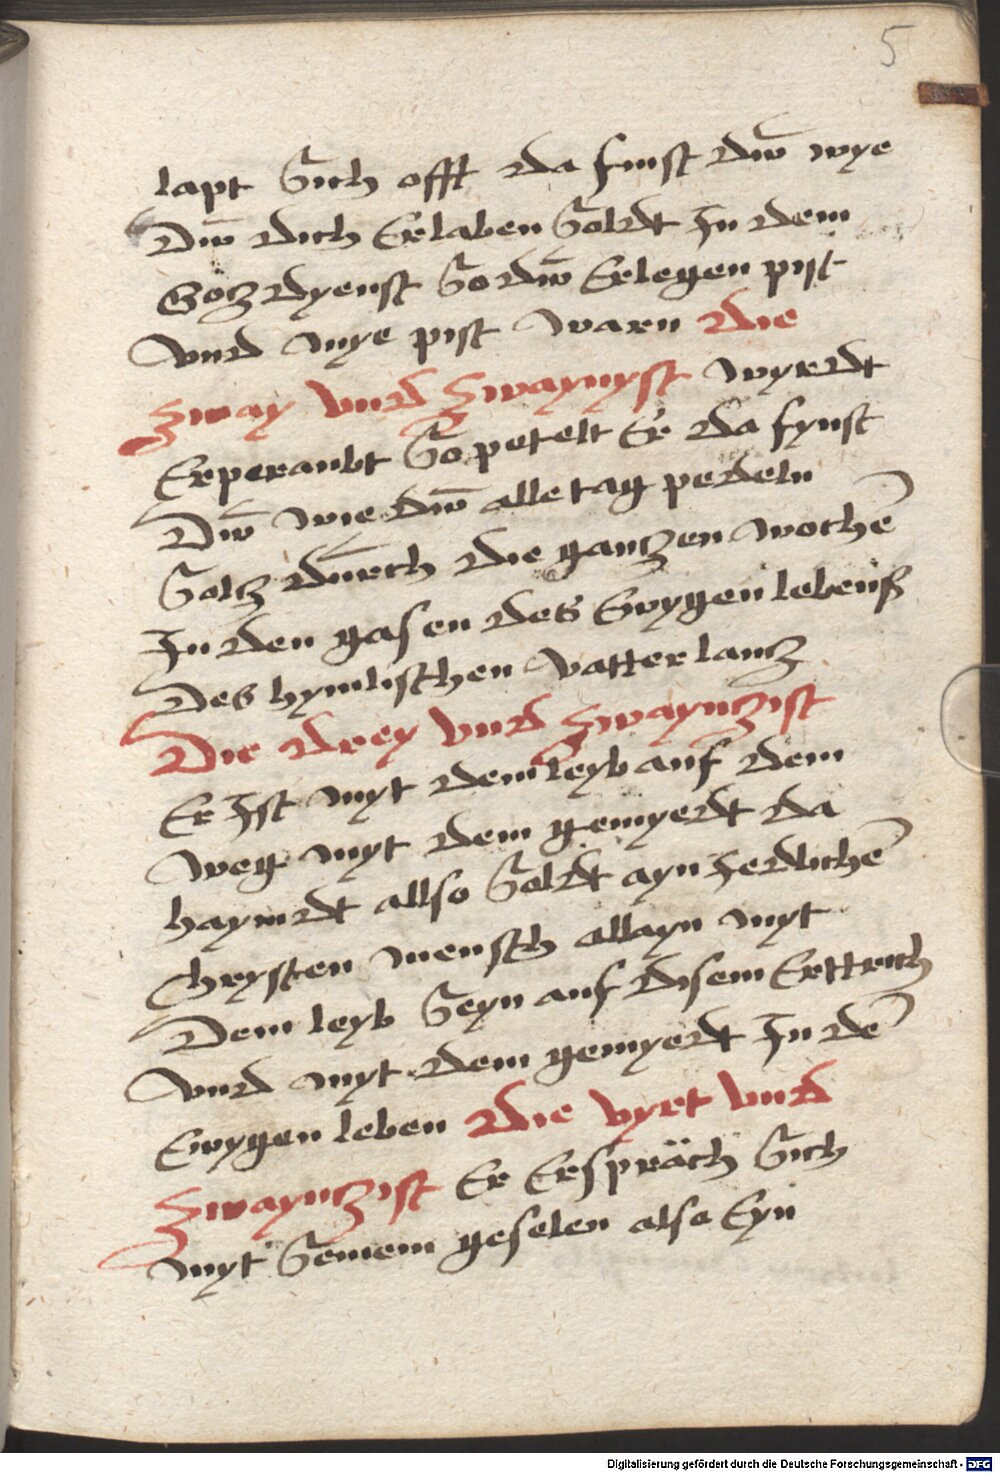 5
lapt Sich offt da finst dw̄ wye
Dw̄ dich Erlaben Soldt In dem
Gotz dyenst So dw̄ Erlegen pist
vnd mye pist warn die
zway vnd zwaynyst wyrdt
Erperaubt So petelt Er da fynst
Dw̄ wie dw̄ alle tag pedeln
Soltz durch die gantzen wochē
In den gasen des Ewygen lebenß
Des hymlischen vatter lantz
Die drey vnd zwayntzist
Er Ist myt dem leyb auf dem
weg myt dem gemyedt da
haymdt allso Soldt ayn Iedlichē
chrysten mensch allayn myt
Dem leyb Seyn auf disem Erttrich
vnd myt dem gemyedt In dē
Ewygen leben die vyet vnd
zwayntzist Er Erspräch Sich
myt Seinem geselen also Eyn
Digitalisierung gefördert durch die Deutsche Forschungsgemeinschaft - DFG